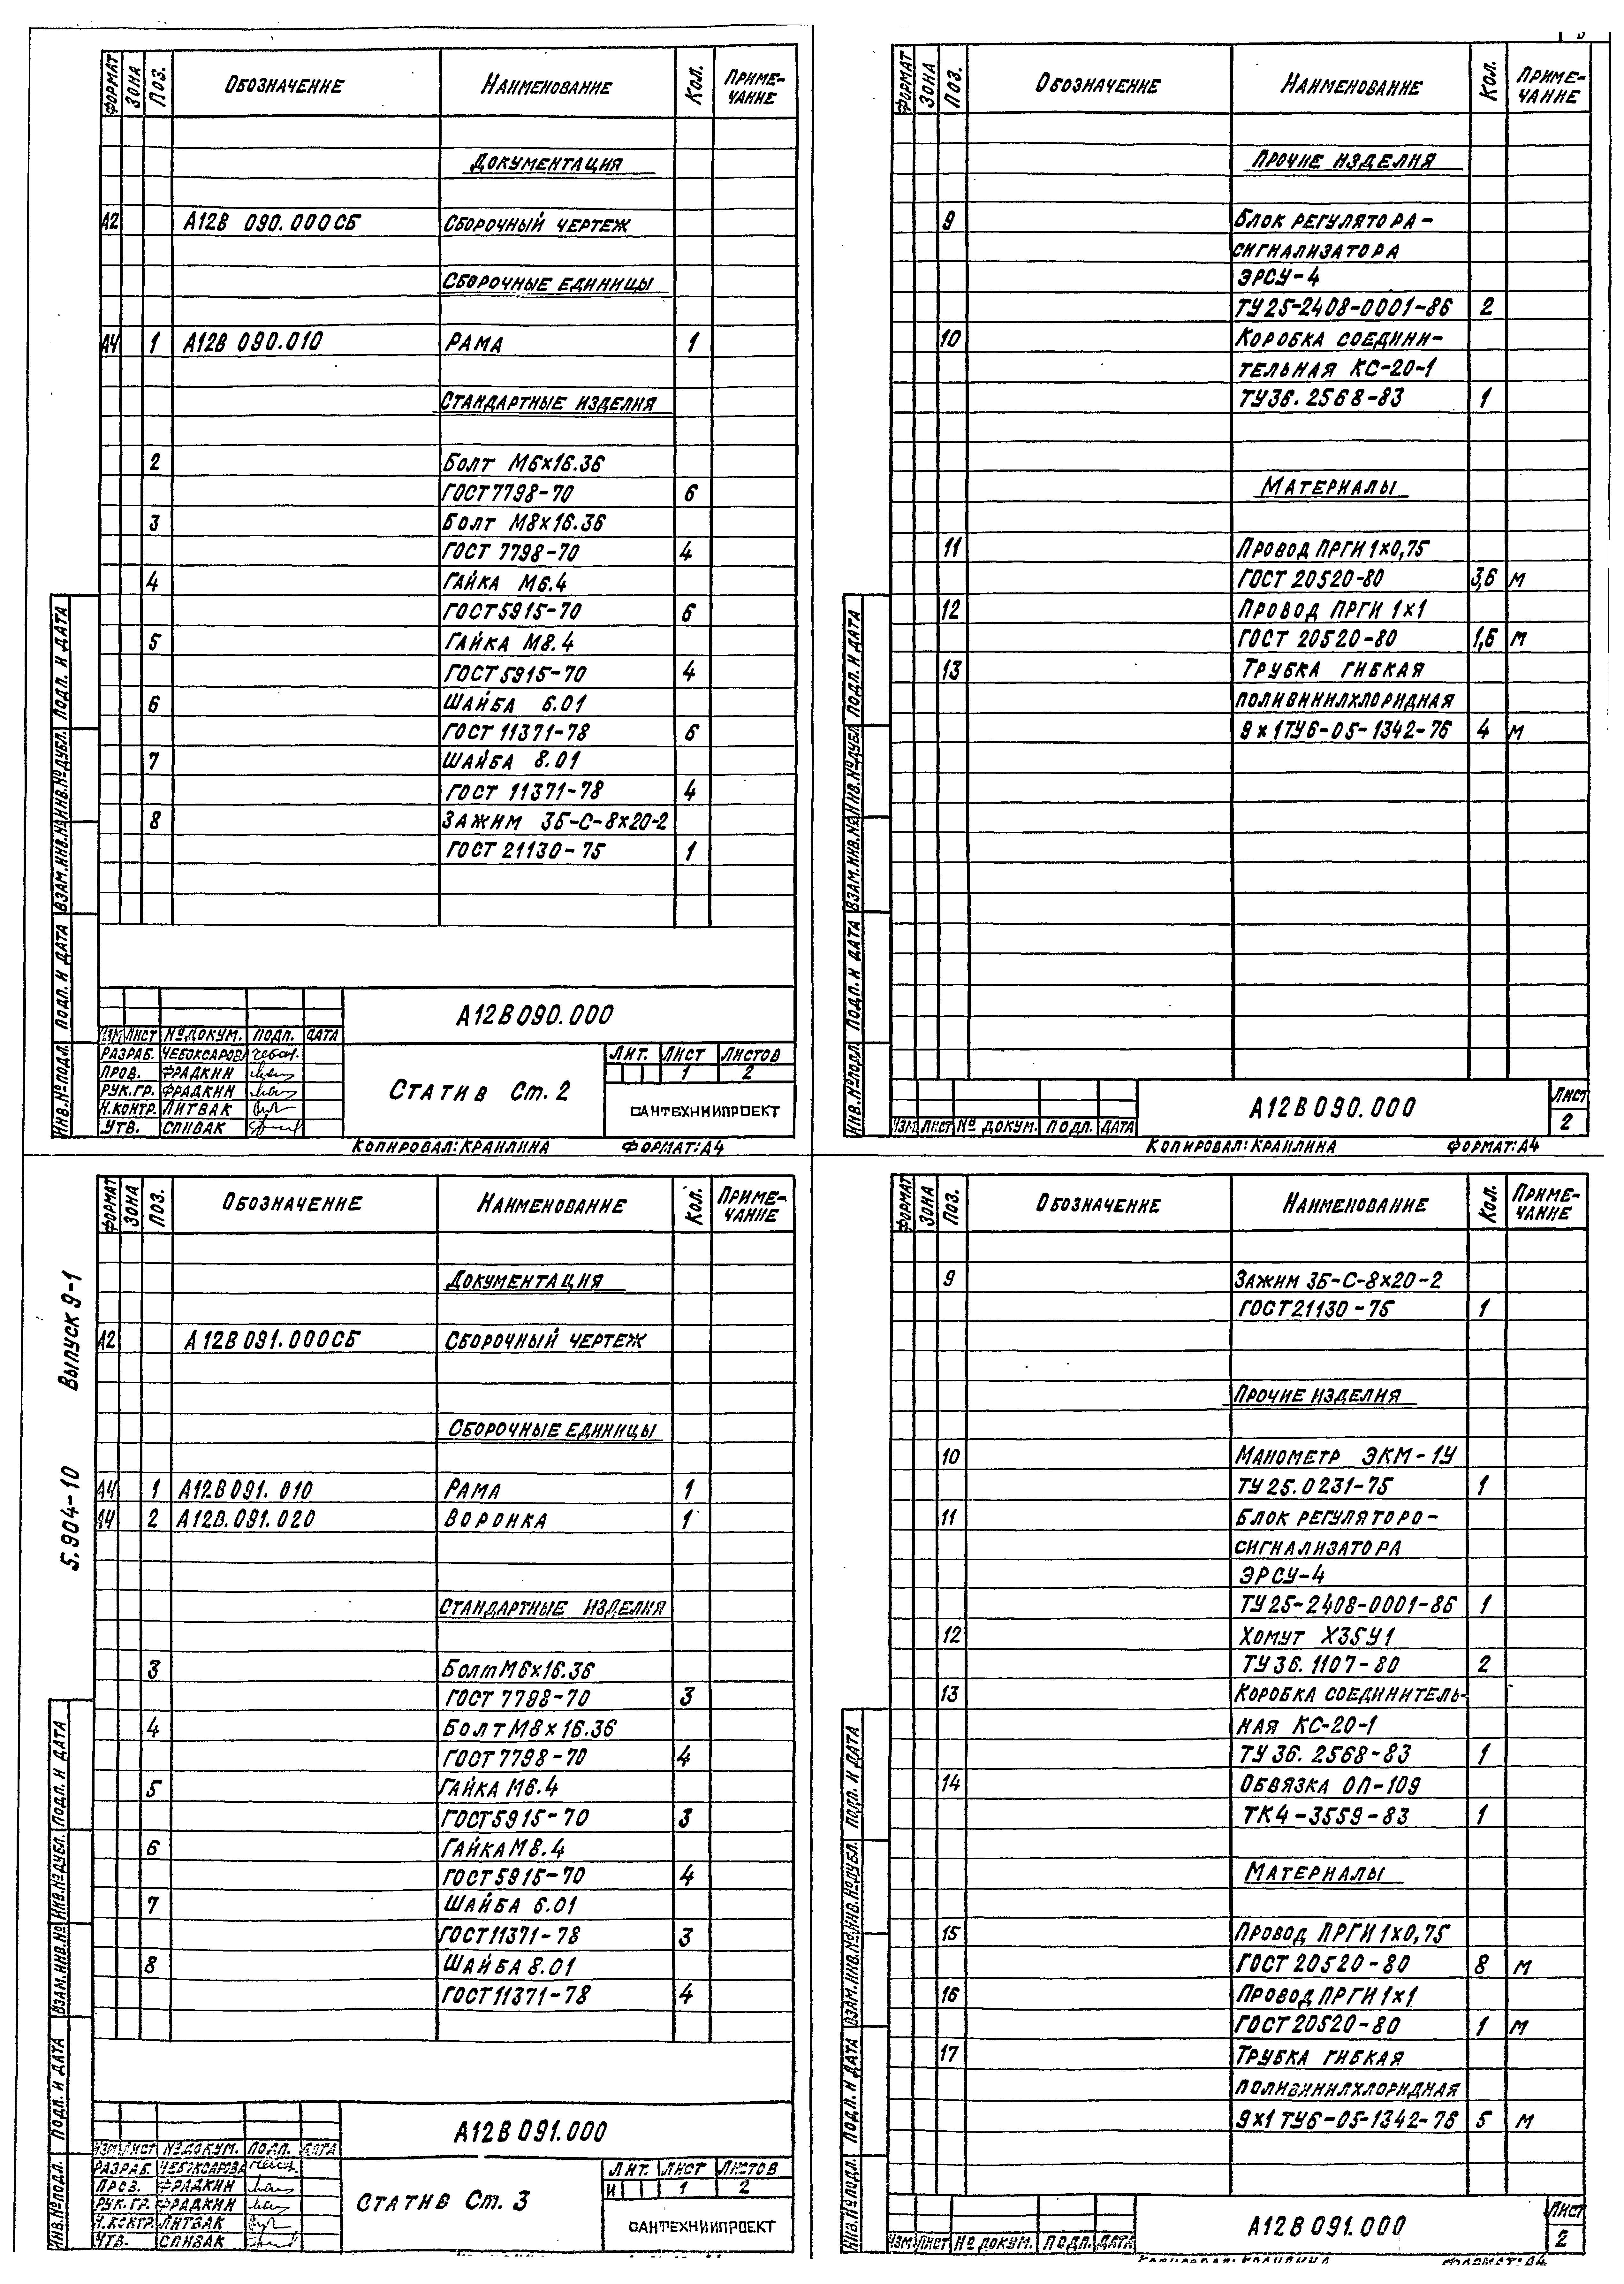 ФОРМАТ ЗОНА ПОЗ. ОБОЗНАЧЕНИЕ НАИМЕНОВАНИЕ КОЛ. ПРИМЕ-
ЧАНИЕ
ДОКУМЕНТАЦИЯ
А2 А12В 090.000СБ СБОРОЧНЫЙ ЧЕРТЕЖ
СБОРОЧНЫЕ ЕДИНИЦЫ
А4 1 А12В 090.010 РАМА 1
СТАНДАРТНЫЕ ИЗДЕЛИЯ
2 БОЛТ М6×16.36
ГОСТ 7798-70 6
3 БОЛТ М8×16.36
ГОСТ 7798-70 4
4 ГАЙКА М6.4
ГОСТ 5915-70 6
5 ГАЙКА М8.4
ГОСТ 5915-70 4
6 ШАЙБА 6.01
ГОСТ 11371-78 6
7 ШАЙБА 8.01
ГОСТ 11371-78 4
8 ЗАЖИМ ЗБ-С-8×20-2
ГОСТ 21130-75 1
ИНВ.№ПОДЛ. ПОДП. И ДАТА ВЗАМ.ИНВ.№ ИНВ.№ДУБЛ. ПОДП. И ДАТА
А12В090.000
ИЗМ ЛИСТ №ДОКУМ. ПОДП. ДАТА
РАЗРАБ. ЧЕБОКСАРОВА
ПРОВ. ФРАДКИН
РУК.ГР. ФРАДКИН
Н.КОНТР. ЛИТВАК
УТВ. СПИВАК
СТАТИВ Ст. 2
ЛИТ. ЛИСТ ЛИСТОВ
1 2
САНТЕХНИИПРОЕКТ
КОПИРОВАЛ: КРАИЛИНА ФОРМАТ: А4
ФОРМАТ ЗОНА ПОЗ. ОБОЗНАЧЕНИЕ НАИМЕНОВАНИЕ КОЛ. ПРИМЕ-
ЧАНИЕ
ПРОЧИЕ ИЗДЕЛИЯ
9 БЛОК РЕГУЛЯТОРА-
СИГНАЛИЗАТОРА
ЭРСУ-4
ТУ25-2408-0001-86 2
10 КОРОБКА СОЕДИНИ-
ТЕЛЬНАЯ КС-20-1
ТУ36.2568-83 1
МАТЕРИАЛЫ
11 ПРОВОД ПРГИ 1×0,75
ГОСТ 20520-80 3,6 м
12 ПРОВОД ПРГИ 1×1
ГОСТ 20520-80 1,6 м
13 ТРУБКА ГИБКАЯ
ПОЛИВИНИЛХЛОРИДНАЯ
9×1ТУ6-05-1342-76 4 м
ИНВ.№ПОДЛ. ПОДП. И ДАТА ВЗАМ.ИНВ.№ ИНВ.№ДУБЛ. ПОДП. И ДАТА
ИЗМ ЛИСТ № ДОКУМ. ПОДП. ДАТА
А12В090.000
ЛИСТ
2
КОПИРОВАЛ: КРАИЛИНА ФОРМАТ: А4
5.904-10 Выпуск 9-1
ФОРМАТ ЗОНА ПОЗ. ОБОЗНАЧЕНИЕ НАИМЕНОВАНИЕ КОЛ. ПРИМЕ-
ЧАНИЕ
ДОКУМЕНТАЦИЯ
А2 А12В 091.000СБ СБОРОЧНЫЙ ЧЕРТЕЖ
СБОРОЧНЫЕ ЕДИНИЦЫ
А4 1 А12В091.010 РАМА 1
А4 2 А12В.091.020 ВОРОНКА 1
СТАНДАРТНЫЕ ИЗДЕЛИЯ
3 Болт М6×16.36
ГОСТ 7798-70 3
4 БОЛТ М8×16.36
ГОСТ 7798-70 4
5 ГАЙКА М6.4
ГОСТ5915-70 3
6 ГАЙКА М8.4
ГОСТ5915-70 4
7 ШАЙБА 6.01
ГОСТ11371-78 3
8 ШАЙБА 8.01
ГОСТ11371-78 4
ИНВ.№ПОДЛ. ПОДП. И ДАТА ВЗАМ.ИНВ.№ ИНВ.№ДУБЛ. ПОДП. И ДАТА
А12В091.000
ИЗМ ЛИСТ №ДОКУМ. ПОДП. ДАТА
РАЗРАБ. ЧЕБОКСАРОВА
ПРОВ. ФРАДКИН
РУК.ГР. ФРАДКИН
Н.КОНТР. ЛИТВАК
УТВ. СПИВАК
СТАТИВ Ст. 3
ЛИТ. ЛИСТ ЛИСТОВ
И 1 2
САНТЕХНИИПРОЕКТ
ФОРМАТ ЗОНА ПОЗ. ОБОЗНАЧЕНИЕ НАИМЕНОВАНИЕ КОЛ. ПРИМЕ-
ЧАНИЕ
9 ЗАЖИМ ЗБ-С-8×20-2
ГОСТ21130-75 1
ПРОЧИЕ ИЗДЕЛИЯ
10 МАНОМЕТР ЭКМ-1У
ТУ25.0231-75 1
11 БЛОК РЕГУЛЯТОРО-
СИГНАЛИЗАТОРА
ЭРСУ-4
ТУ25-2408-0001-86 1
12 ХОМУТ Х35У1
ТУ36.1107-80 2
13 КОРОБКА СОЕДИНИТЕЛЬ-
НАЯ КС-20-1
ТУ 36.2568-83 1
14 ОБВЯЗКА ОП-109
ТК4-3559-83 1
МАТЕРИАЛЫ
15 ПРОВОД ПРГИ 1×0,75
ГОСТ 20520-80 8 м
16 ПРОВОД ПРГИ 1×1
ГОСТ 20520-80 1 м
17 ТРУБКА ГИБКАЯ
ПОЛИВИНИЛХЛОРИДНАЯ
9×1 ТУ6-05-1342-76 5 м
ИНВ.№ПОДЛ. ПОДП. И ДАТА ВЗАМ.ИНВ.№ ИНВ.№ДУБЛ. ПОДП. И ДАТА
ИЗМ ЛИСТ № ДОКУМ. ПОДП. ДАТА
А12В091.000
ЛИСТ
2
КОПИРОВАЛ: КРАИЛИНА ФОРМАТ: А4